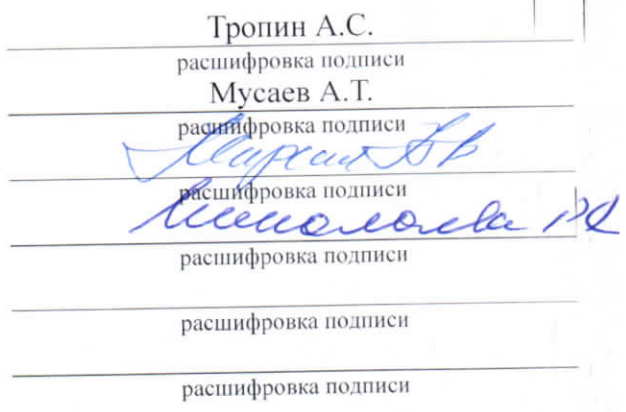 Тропин А.С.
расшифровка подписи
Мусаев А.Т.
расшифровка подписи
расшифровка подписи
расшифровка подписи
расшифровка подписи
расшифровка подписи